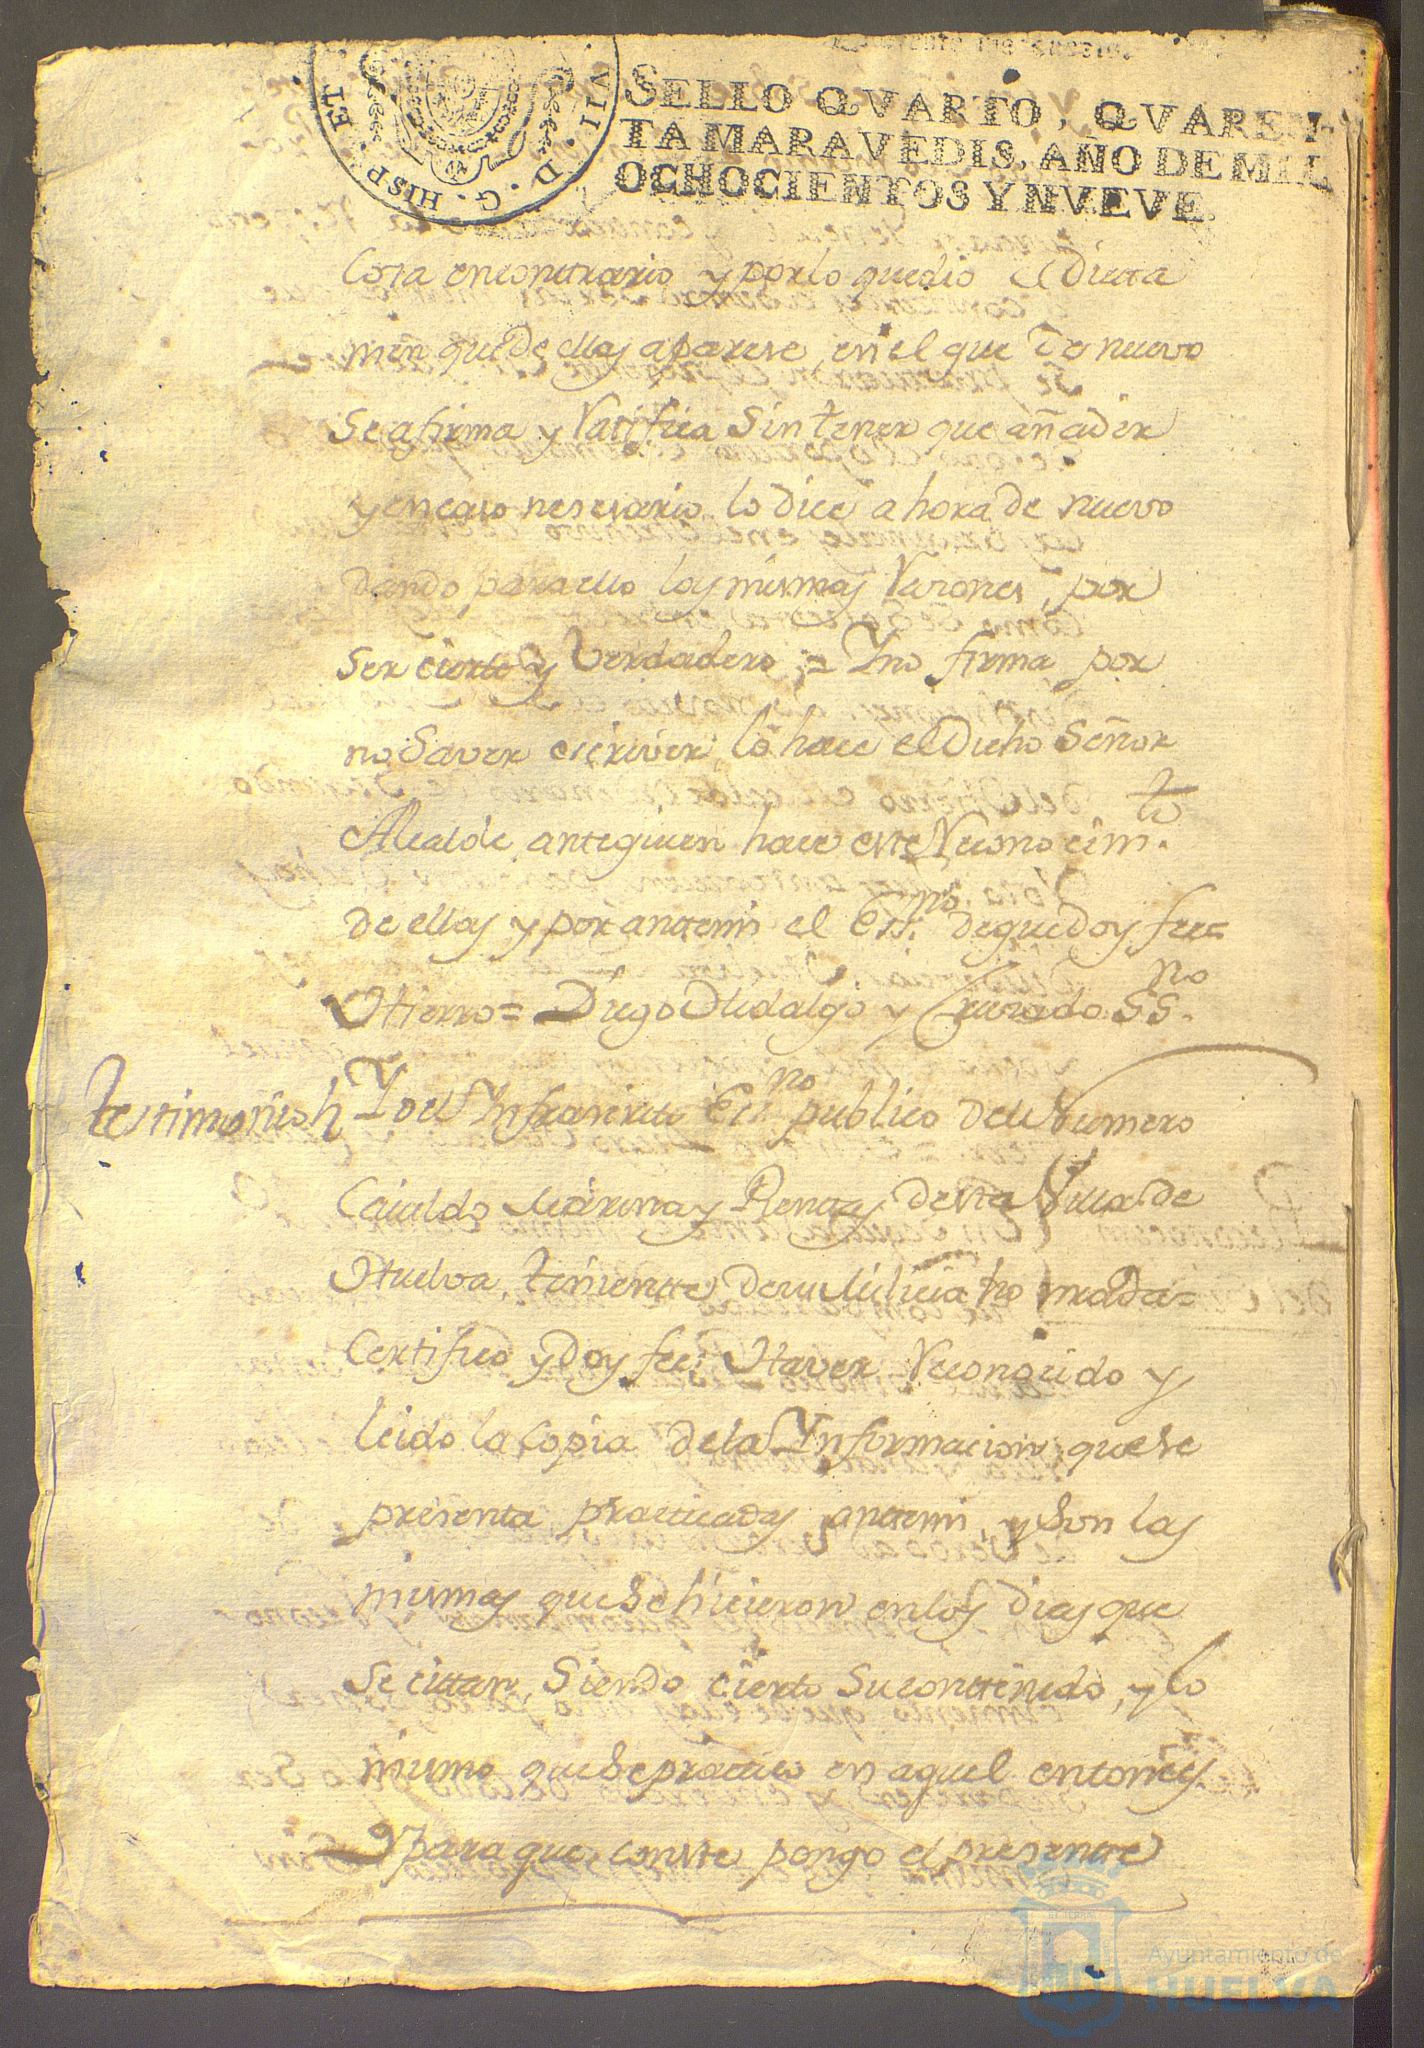 VII · D · G · HISP · ET
SELLO QVARTO, QVAREN
TA MARAVEDIS, AÑO DE MIL
OCHOCIENTOS Y NVEVE.
Cosa encontrario y porlo quedio el Dicta
men que de ellas aparese, en el que De nuevo
Se afirma y Ratifica Sin tener que añadir
y en caso nesesario lo Dice ahora de nuevo
dando para ello las mismas Rasones, por
Ser cierto y Verdadero, = Y no firma por
no Saver escriver, lo hace el Dicho Señor
Alcalde antequien hace este Reconocim.to
De ellas y por antemi el Ess.no deque doy fee=
Hierro = Diego Hidalgo y Quesado SS.no
Testimonio Yo el Ynfrascrito Ess.no publico Del Numero
Cavildo Marina y Rentas de esta Villa de
Huelva, teniente De su Milicia Honrrada=
Certifico y Doy fee: Haver Reconocido y
leido la Copia De la Ynformacion, que se
presenta practicadas antemi, y Son las
mismas que Se hicieron en los Dias que
Se cittan, Siendo cierto Su conttenido, y lo
mismo que Se practico en aquel entonces.
Y para que conste pongo el presentte
Ayuntamiento de
HUELVA